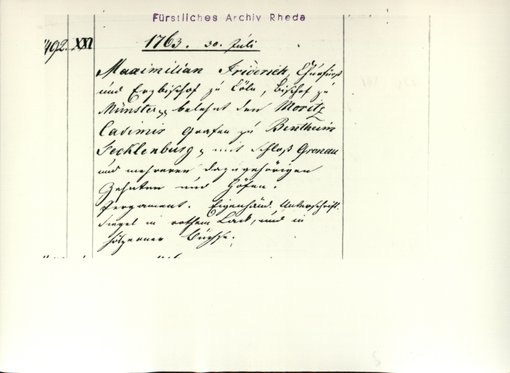 Fürstliches Archiv Rheda
492. XXI 1763. 30. Juli
Maximilian Friderich, Churfürst
und Erzbischof zu Cöln, Bischof zu
Münster belehnt den Moritz
Casimir Grafen zu Bentheim
Tecklenburg mit Schloß Gronau
und mehreren dazugehörigen
Zehnten und Höfen.
Pergament. Eigenhänd. Unterschrift.
Siegel in rothem Lack, und in
hölzerner Büchse.